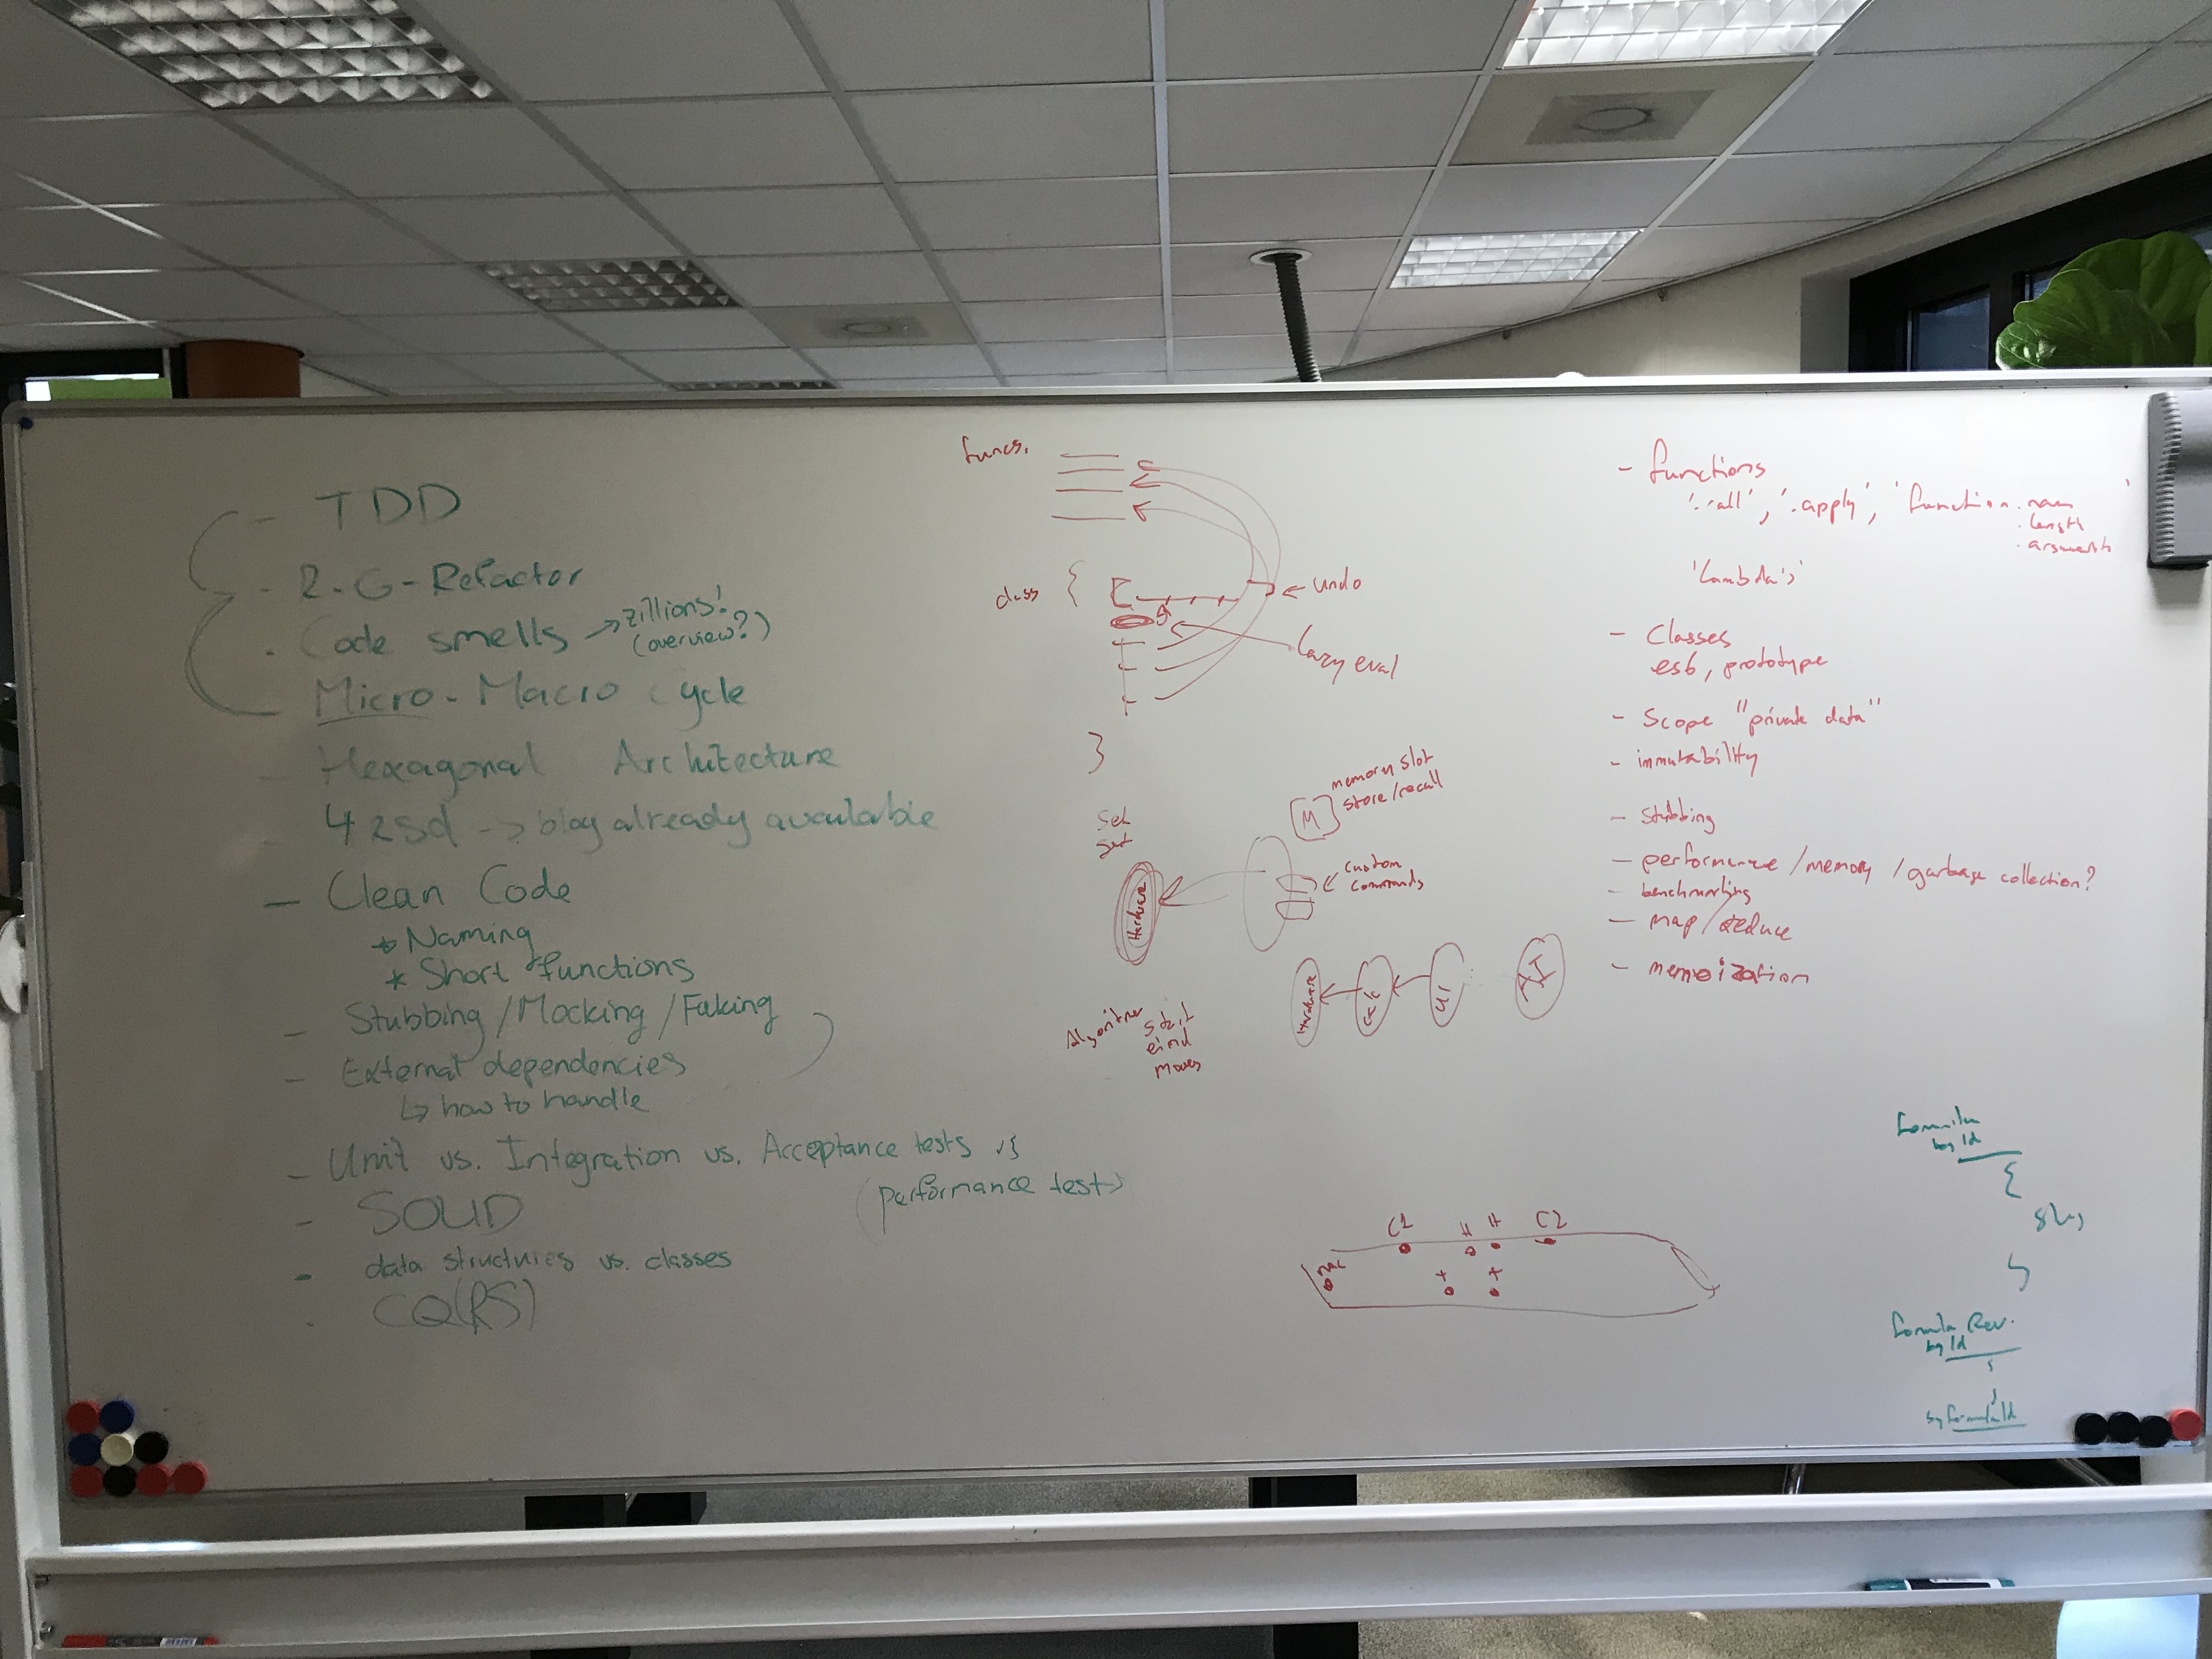 - TDD
- R-G-Refactor
- Code smells → zillions!
(overview?)
Micro-Macro Cycle
- Hexagonal Architecture
- 4rsd -> blog already available
- Clean Code
* Naming
* Short functions
- Stubbing/Mocking/Faking
- External dependencies
↳ how to handle
- Unit vs. Integration vs. Acceptance tests vs
(performance test)
- SOLID
- data structures vs. classes
- CQ(RS)
funcs.
class {
← undo
Lazy eval
}
memory slot
store/recall
M
Hardware
custom
commands
Hardware
UI
AI
eind
moves
C1 H H C2
+ +
- functions
'.call', '.apply', 'function.name
.length
.arguments
'
'Lambda's'
- Classes
es6, prototype
- Scope "private data"
- immutability
- Stubbing
- performance/memory/garbage collection?
- benchmarking
- map/reduce
- memoization
formula
by Id
{
}
formula Rev.
by Id
by formulaId